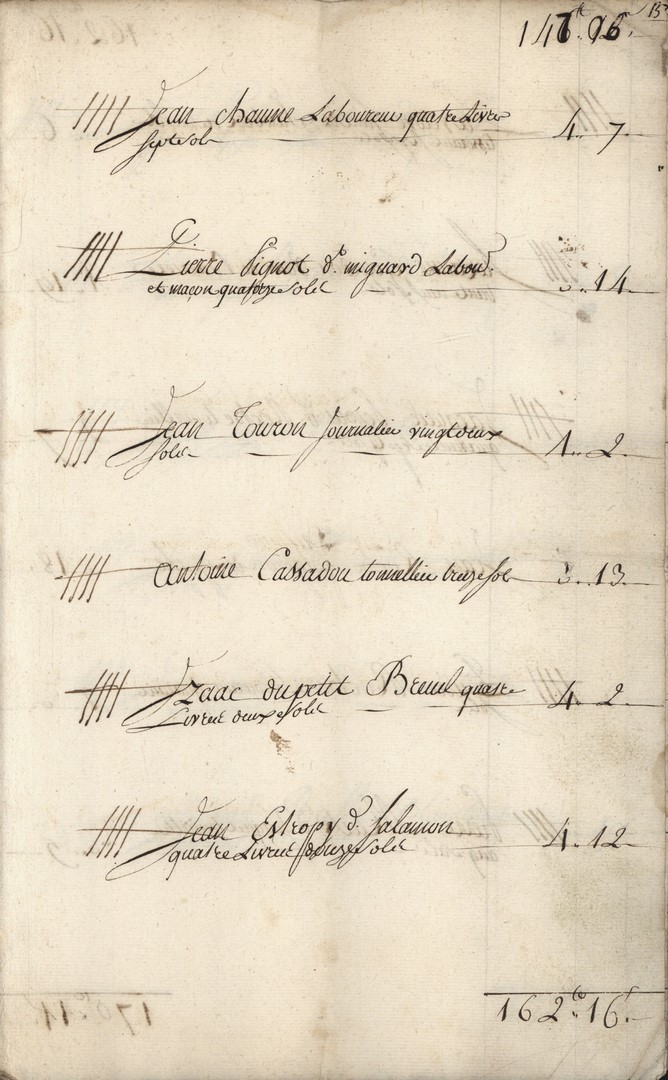 15
147 tt. 06 s.
Jean chaune Laboureur quatre Livres 4.. 7.
sept sols
Pierre Pignot dt. mignard Labour. .. 14.
et maçon quatorze solz
Jean Touron Journalier vingt deux 1.. 2.
solz
Antoine Cassadou tonnellier treize sol .. 13.
Izaac du petit Breuil quatre 4.. 2.
Livres deux solz
Jean Estropy dt. Salamon 4.. 12.
quatre Livres douze solz
162 tt. 16 s.